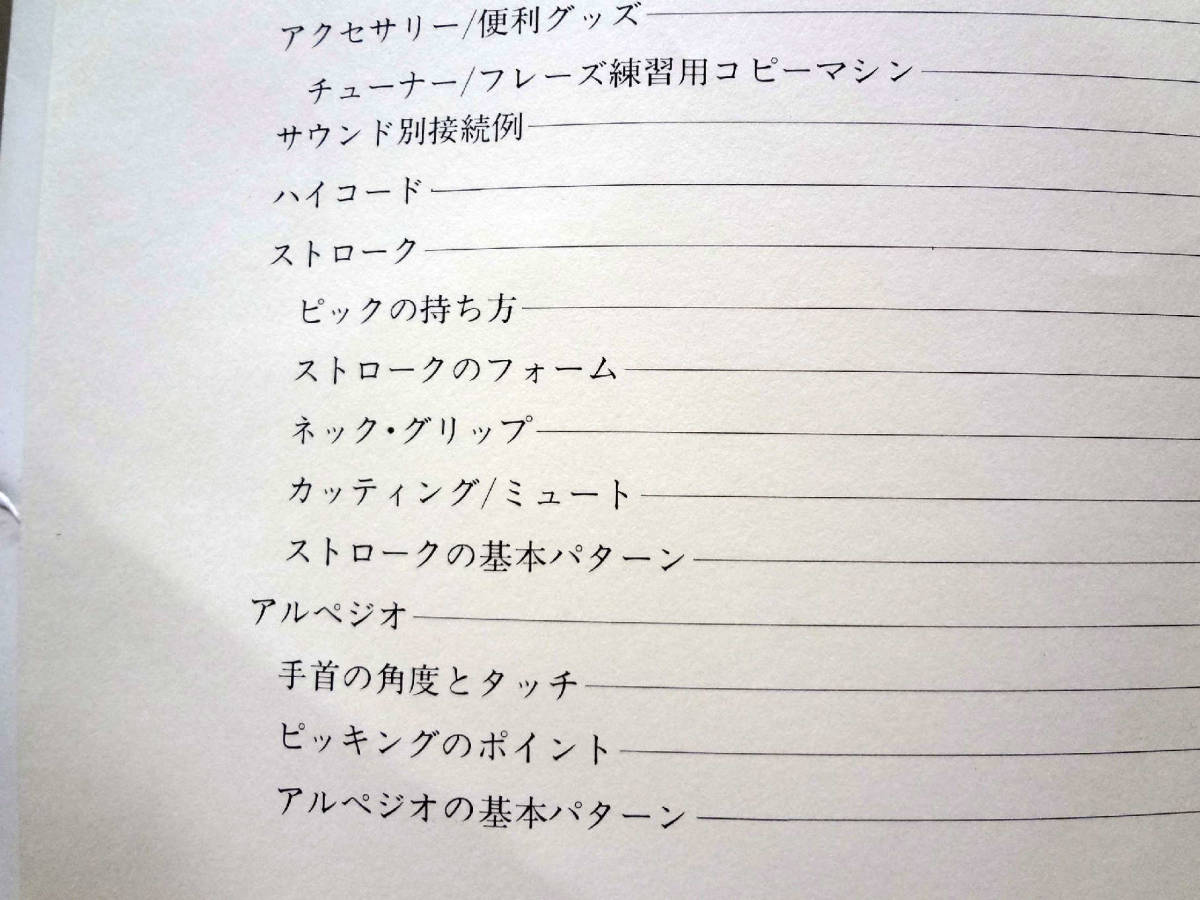 アクセサリー/便利グッズ
チューナー/フレーズ練習用コピーマシン
サウンド別接続例
ハイコード
ストローク
ピックの持ち方
ストロークのフォーム
ネック・グリップ
カッティング/ミュート
ストロークの基本パターン
アルペジオ
手首の角度とタッチ
ピッキングのポイント
アルペジオの基本パターン